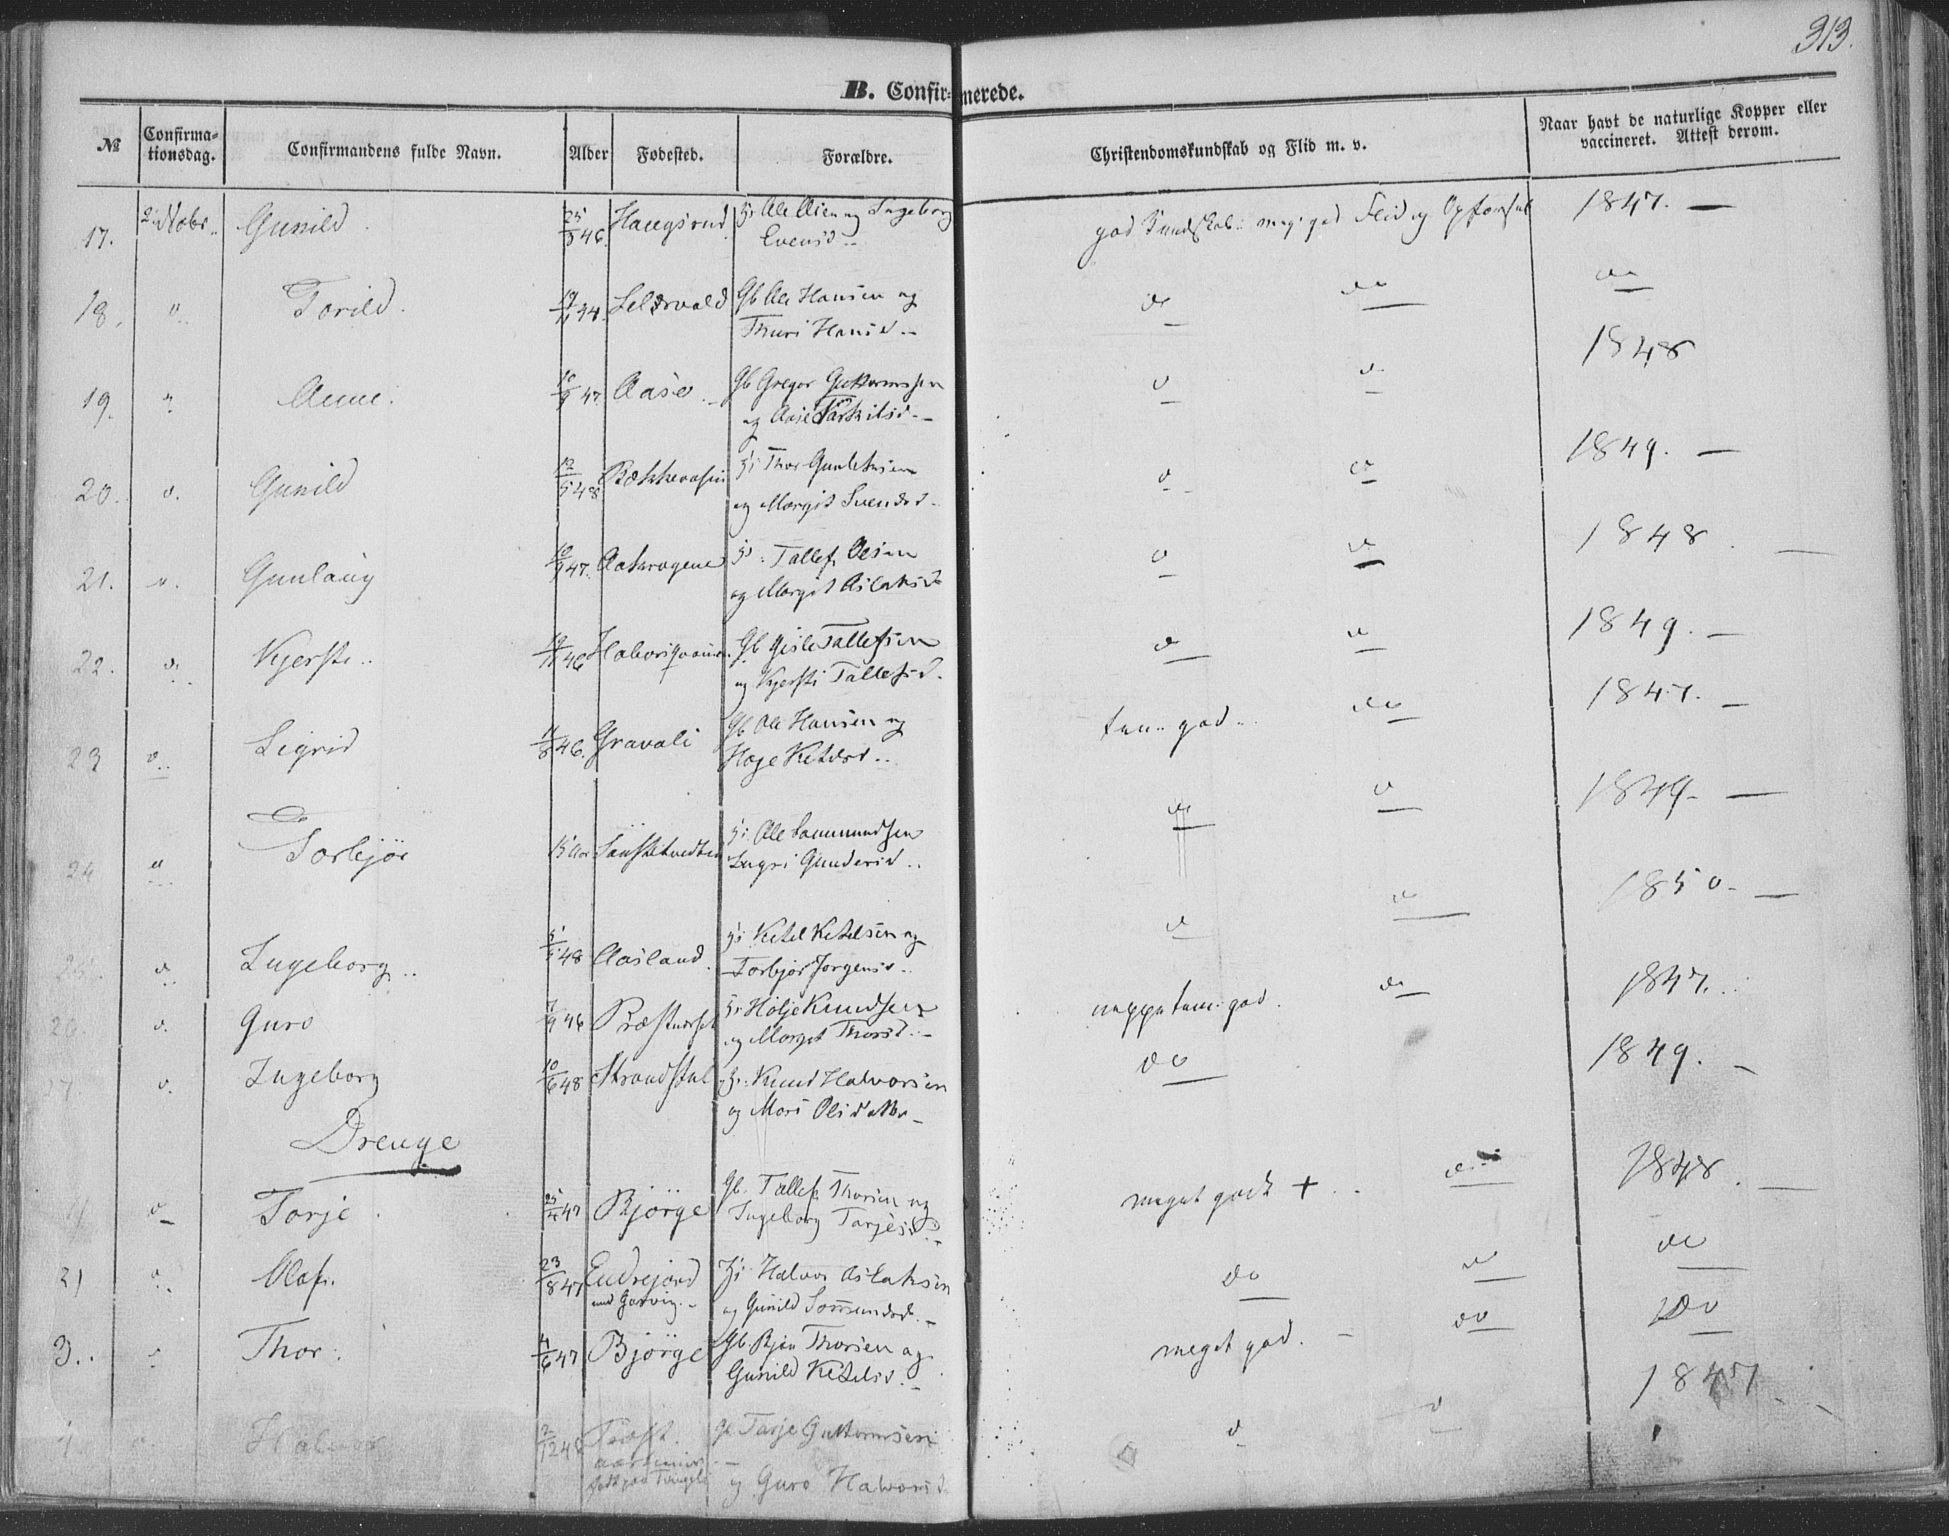 313.
B. Confirmerede.
№ Confirma-tionsdag. Confirmandens fulde Navn. Alder Fødested. Forældre. Christendomskundskab og Flid m. v. Naar havt de naturlige Kopper eller vaccineret. Attest derom.
17. Gunild 25/3 46. Haugsrud Hs Ole Olsen og Ingeborg
Evensd.. god Kundskab.. meg. god Flid og Opførsel 1847. —
18. " Torild. 44. Gb Ole Hansen og
Thuri Hansd.. do do do
19. " Anne. 47. Aase.. Gb Gregor Guttormsen
og Aase Tarkilsd.. do do 1848
20. do. Gunild 12/5 48 Hs Thor Gunleksen
og Margit Svendsd.. do do 1849. —
21. do. Gunlaug 47. Hs. Tallef Olsen
og Margit Aslaksd. do do 1848. —
22. do. Kjersti.. 46 Gb Gisle Tallefsen
og Kjersti Tallefsd. do do 1849. —
23 do.. Sigrid 46. Gravali Gb Ole Hansen og
Hæge Ketilsd.. tem. god.. do 1847. —
24 do Torbjør 15 Aar Hs. Ole Sammundsen
Ingri Gundersd.. do do 1849. —
do. Ingeborg.. 48 Aasland. Hs Ketel Ketelsen og
Torbjør Jørgensd.. do do 1850. —
26. do. Guro 7/9 46 Hs Holje Knudsen
og Margit Thorsd.. neppe tem. god. do 1847..
27. do. Ingeborg 10/6 48 Strandstøl Hs. Knud Halvorsen
og Mari Olsdatter do 1849. —
Drenge
do Torje. 25/4 47 Bjørge Gb. Tallef Thorsen og
Ingeborg Tarjesd.. meget godt + .. do 1848. —
2) do. Olaf. 23/8 47 Hs Halvor Aslaksen
og Gunild Sommundsd.. do do do
3.. Thor. 4/6 47 Bjørge Gb Bjøn Thorsen og
Gunild Ketilsd.. meget god. — do do
4 Halvor 2/12 46 Gb Tarje Guttormsen
og Guro Halvorsd. do do 1847